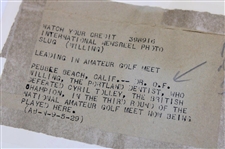 WATCH YOUR CREDIT 398916
INTERNATIONAL NEWSREEL PHOTO
SLUG (WILLING)
LEADING IN AMATEUR GOLF MEET
PEBBLE BEACH, CALIF.-- DR. O.F.
WILLING, THE PORTLAND DENTIST, WHO
DEFEATED CYRIL TOLLEY, THE BRITISH
CHAMPION, IN THE THIRD ROUND OF THE
NATIONAL AMATEUR GOLF MEET NOW BEING
PLAYED HERE.
9-5-29)